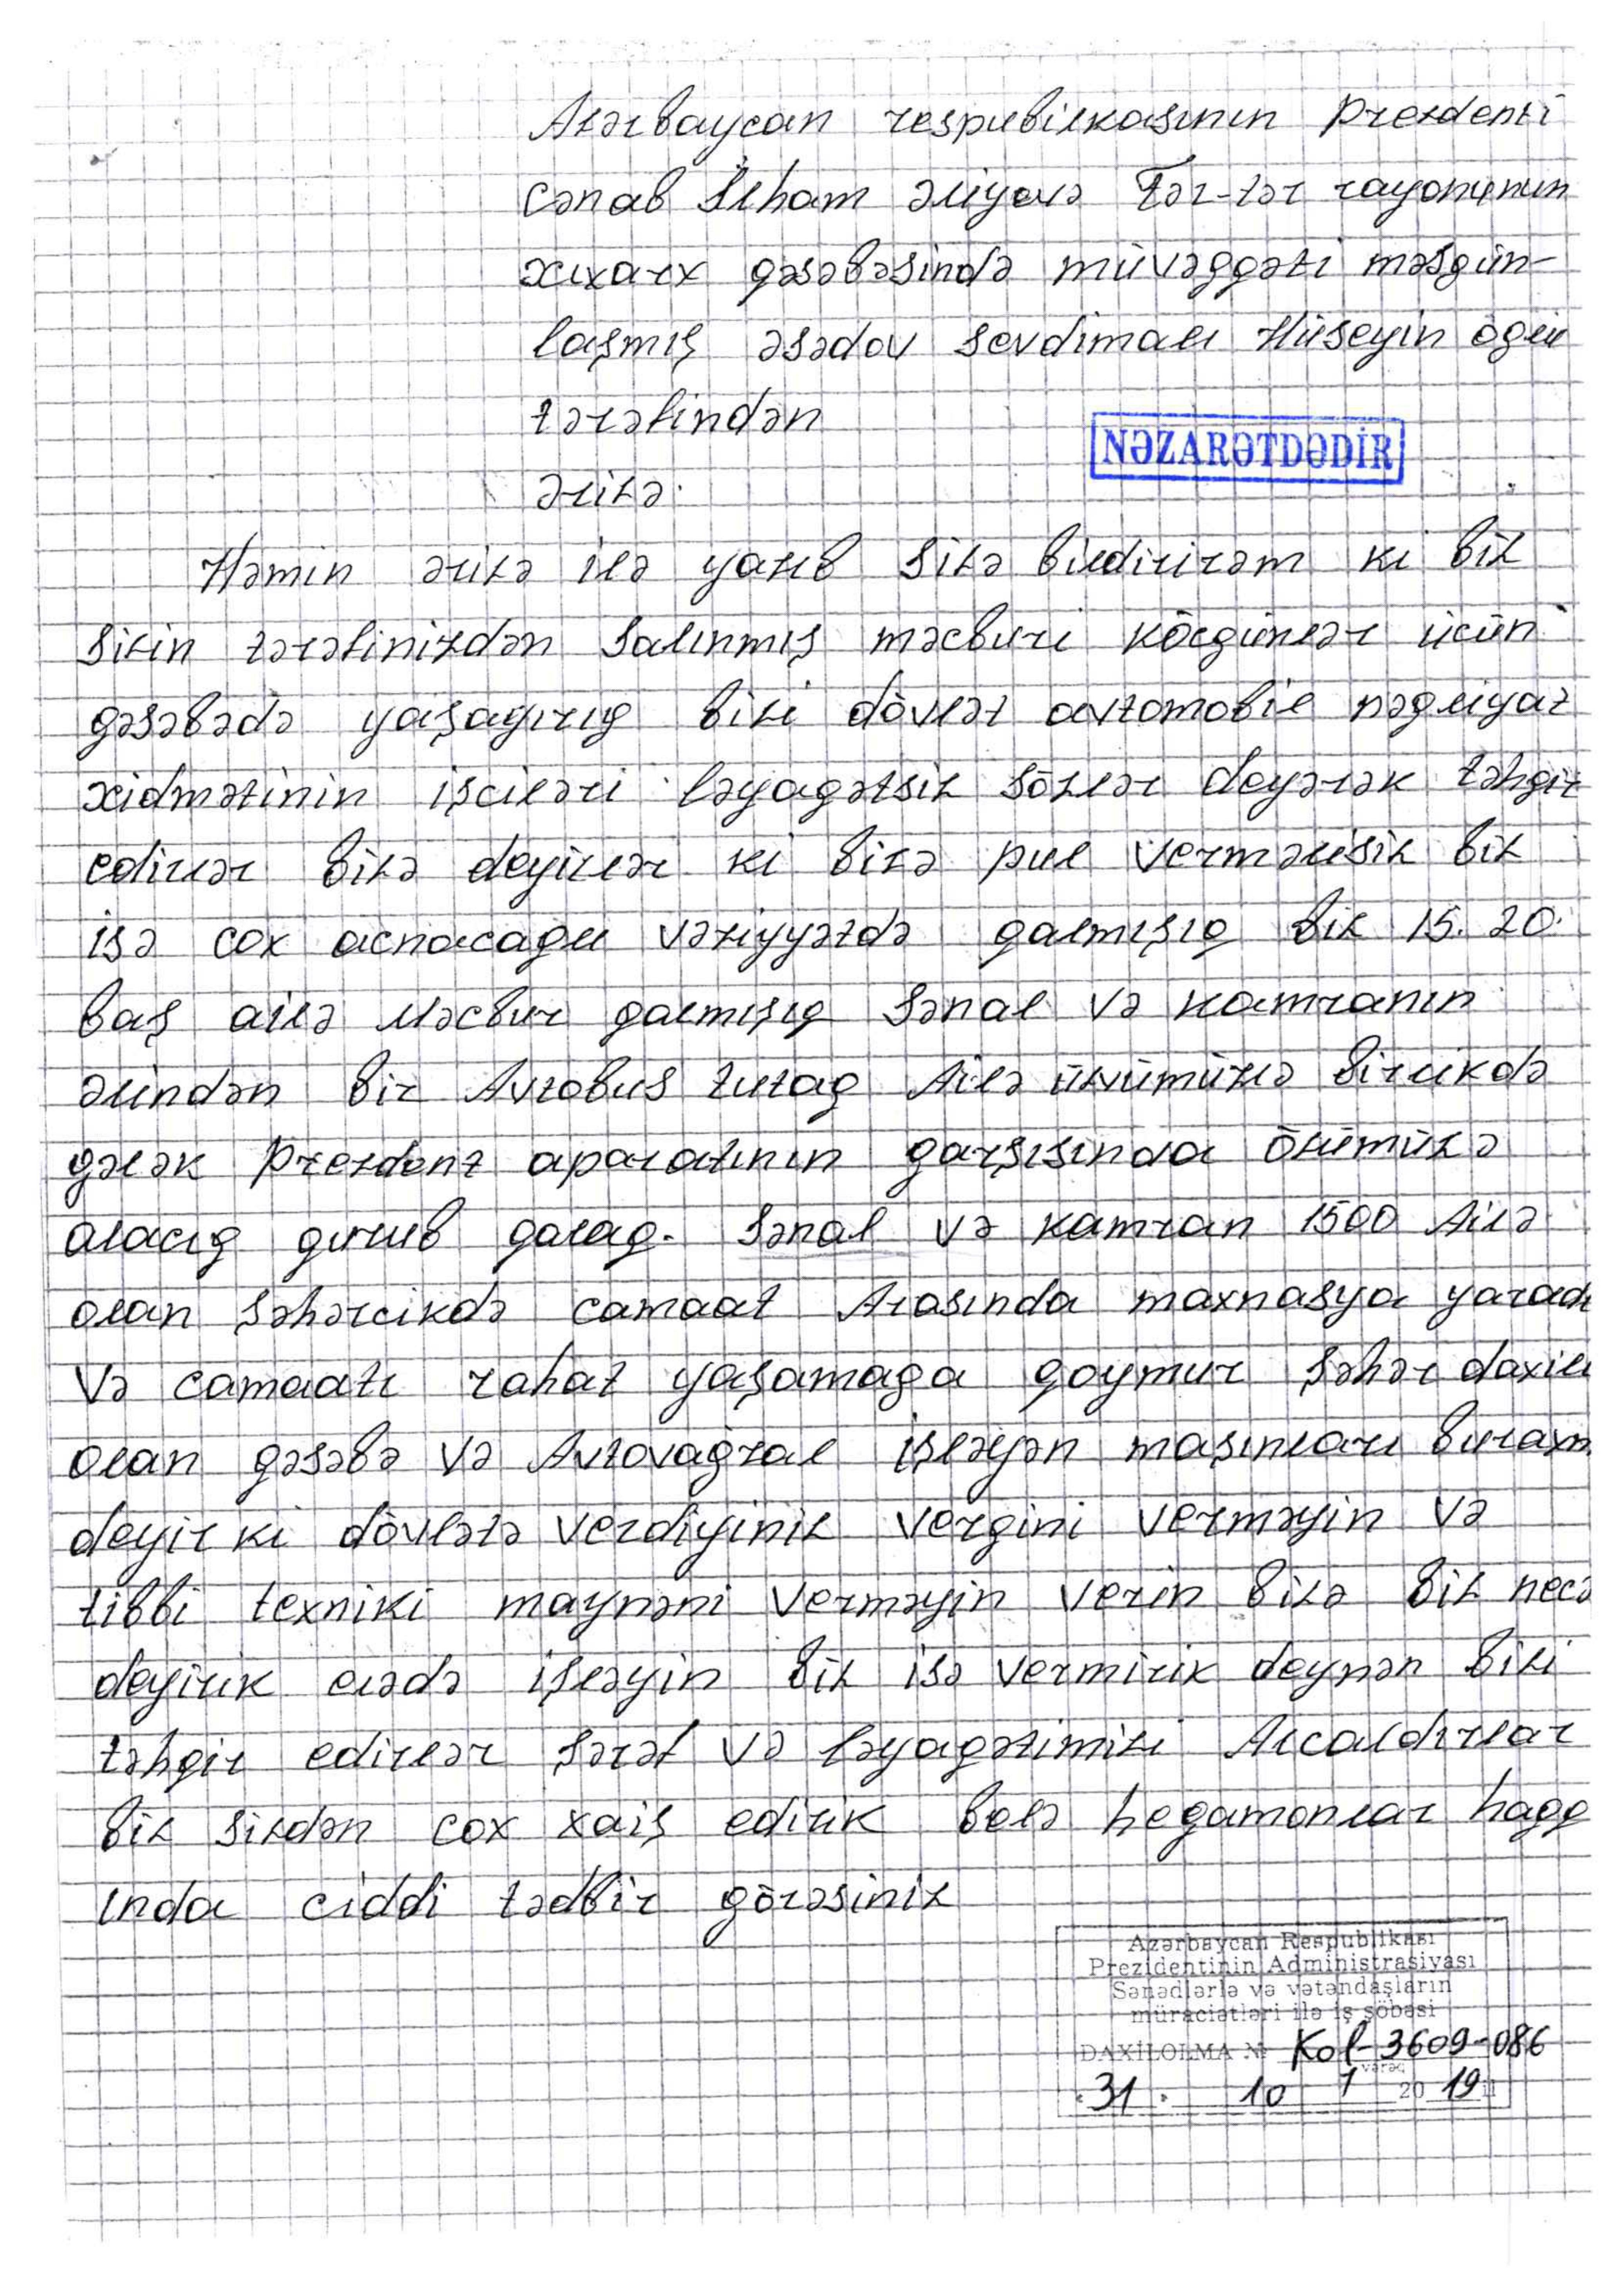 Azərbaycan respubilkasının prezdenti
cənab İlham əliyevə Tər-tər rayonunun
xıxarx gəsəbəsində müvəggəti məsgün-
laşmış əsədov Sevdimalı Hüseyin oglu
tərəfindən
NƏZARƏTDƏDİR
ərizə.
Həmin ərizə ilə yazıb sizə bildirirəm ki biz
sizin tərəfinizdən salınmış məcburi köcgünlər ücün
gəsəbədə yaşayırıg bizi dövlət avtomobil nəgliyat
xidmətinin işciləri ləyagətsiz sözlər deyərək təhgir
edirlər bizə deyirlər ki bizə pul verməlisiz biz
isə cox acnacaglı vəziyyətdə galmışıg biz 15. 20.
baş ailə Məcbur galmışıg Sənal və kamranın
əlindən bir Avtobus tutag Ailə üzvümüzlə birlikdə
gələk prezdent aparatının garşısında özümüzə
alacıg gurub galag. Sənal və kamran 1500 Ailə
olan şəhərcikdə camaat Arasında maxnasya yaradır
Və camaatı rahat yaşamaga goymur şəhər daxili
olan gəsəbə və Avtovağzal işləyən maşınları buraxm
deyir ki dövlətə verdiyiniz vergini verməyin və
tibbi texniki maynəni verməyin verin bizə biz necə
deyirik elədə işləyin biz isə vermirik deynən bizi
təhgir edirlər şərəf və ləyagətimizi Alcaldırlar
biz sizdən cox xaiş edirik belə hegamonlar hagg
ında ciddi tədbir görəsiniz
Azərbaycan Respublikası
Prezidentinin Administrasiyası
Sənədlərlə və vətəndaşların
müraciətləri ilə iş şöbəsi
DAXİLOLMA № Kol-3609-086
vərəq
31. 10 1 2019 il